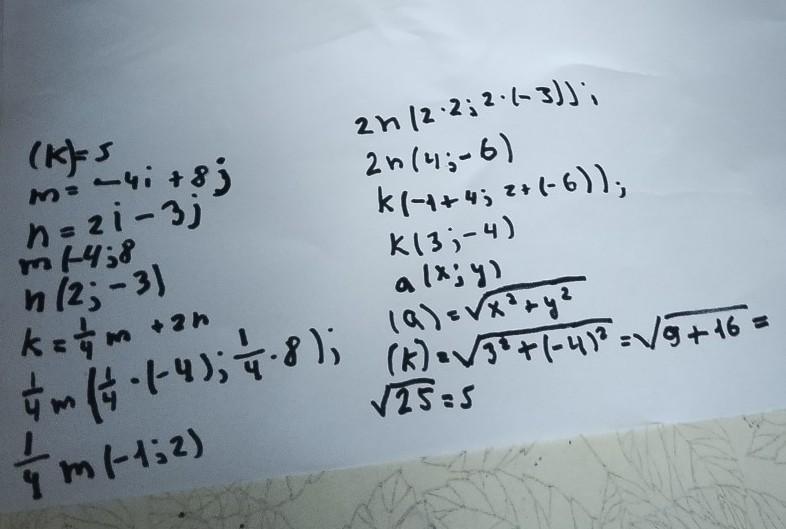 (k)=5
m= -4i +8j
n = 2i -3j
m(-4;8
n(2;-3)
k = 1/4 m + 2n
1/4 m (1/4 · (-4); 1/4 · 8);
1/4 m(-1;2)
2n(2·2;2·(-3));
2n(4;-6)
k(-1+4; 2+(-6));
k(3;-4)
a(x;y)
(a)=√x²+y²
(k)=√3²+(-4)² =√9+16 =
√25=5